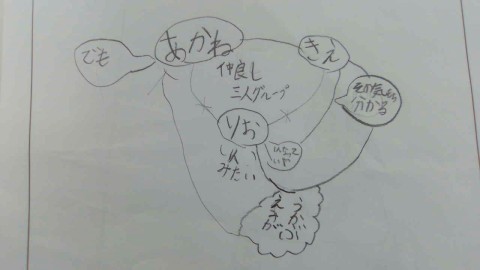 でも
あかね
きえ
仲良し
三人グループ
その気もち
分かる
りお
しん
みたい
うかぶ
えきが